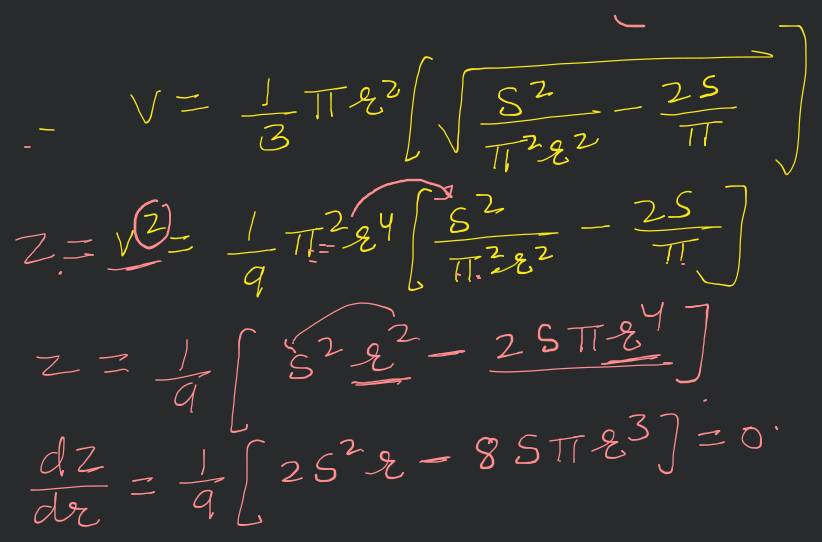 ∴ V = 1/3 π r² [ √( S²/(π² r²) − 2S/π ) ]
Z = V² = 1/9 π² r⁴ [ S²/(π² r²) − 2S/π ]
Z = 1/9 [ S² r² − 2Sπ r⁴ ]
dZ/dr = 1/9 [ 2S² r − 8Sπ r³ ] = 0